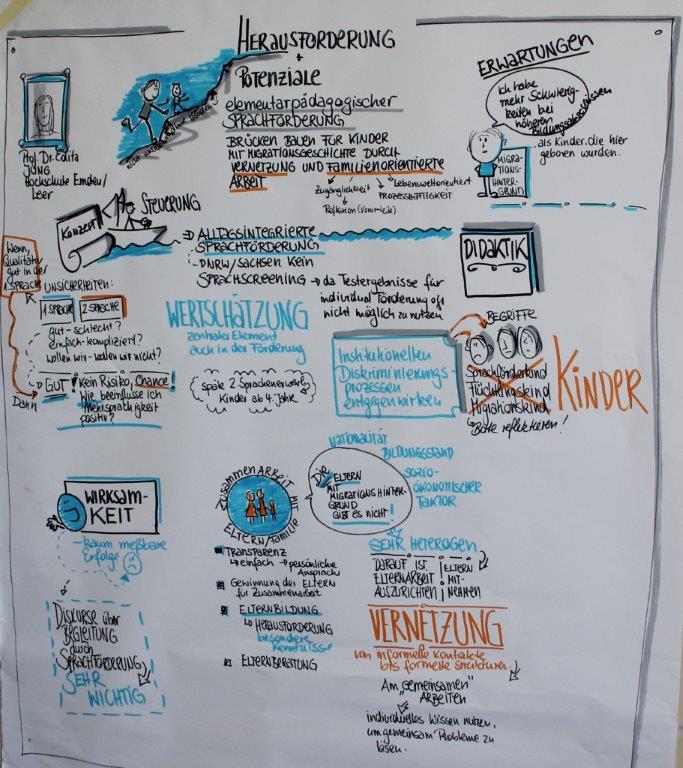 HERAUSFORDERUNG
+
POTENZIALE
elementarpädagogischer
SPRACHFÖRDERUNG
BRÜCKEN BAUEN FÜR KINDER
MIT MIGRATIONSGESCHICHTE DURCH
VERNETZUNG UND FAMILIENORIENTIERTE
ARBEIT
Zugänglichkeit
Lebensweltorientiert
PROZESSHAFTIGKEIT
Prof. Dr. Edita
JUNG
Hochschule Emden/
Leer
ERWARTUNGEN
Ich habe
mehr Schwierig-
keiten bei
höheren
Bildungsabschlüssen
als Kinder, die hier
geboren wurden.
MIGRA-
TIONS-
HINTER-
GRUND
KONZEPT
STEUERUNG
ALLTAGSINTEGRIERTE
SPRACHFÖRDERUNG
NRW/SACHSEN KEIN
SPRACHSCREENING
da Testergebnisse für
individual Förderung oft
nicht möglich zu nutzen
DIDAKTIK
Wenn
Qualität
gut in der
1 SPRACHE
Dann
UNSICHERHEITEN:
1 SPRACHE
2 SPRACHE
gut - schlecht?
einfach - kompliziert?
wollen wir - wollen wir nicht?
GUT! Kein Risiko, Chance!
Wie beeinflusse ich
Mehrsprachigkeit
positiv?
WERTSCHÄTZUNG
zentrales Element
auch in der Förderung
späte 2 Sprachenerwerb
Kinder ab 4. Jahre
Institutionellen
Diskriminierungs-
prozessen
entgegenwirken
BEGRIFFE
Sprachförderkind
Flüchtlingskind
Migrationskind
KINDER
Bitte reflektieren!
WIRKSAM-
KEIT
kaum meßbare
Erfolge
DISKURSE über
BEGLEITUNG
durch
SPRACHFÖRDERUNG
SEHR
WICHTIG
ZUSAMMENARBEIT MIT
ELTERN/FAMILIE
TRANSPARENZ
einfach
persönliche
Ansprache
Gewinnung der ELTERN
für Zusammenarbeit
ELTERNBILDUNG
HERAUSFORDERUNG
besondere
Kenntnisse
ELTERNBERATUNG
Die ELTERN
MIT
MIGRATIONSHINTER-
GRUND
GIBT ES NICHT!
NATIONALITÄT
BILDUNGSSTAND
SOZIO-
ÖKONOMISCHER
FAKTOR
SEHR HETEROGEN
DARAUF IST
ELTERNARBEIT
AUSZURICHTEN
ELTERN
MIT-
NEHMEN
VERNETZUNG
von informelle Kontakte
bis formelle Strukturen
Am "gemeinsamen"
ARBEITEN
individuelles Wissen nutzen,
um gemeinsam Probleme zu
lösen.